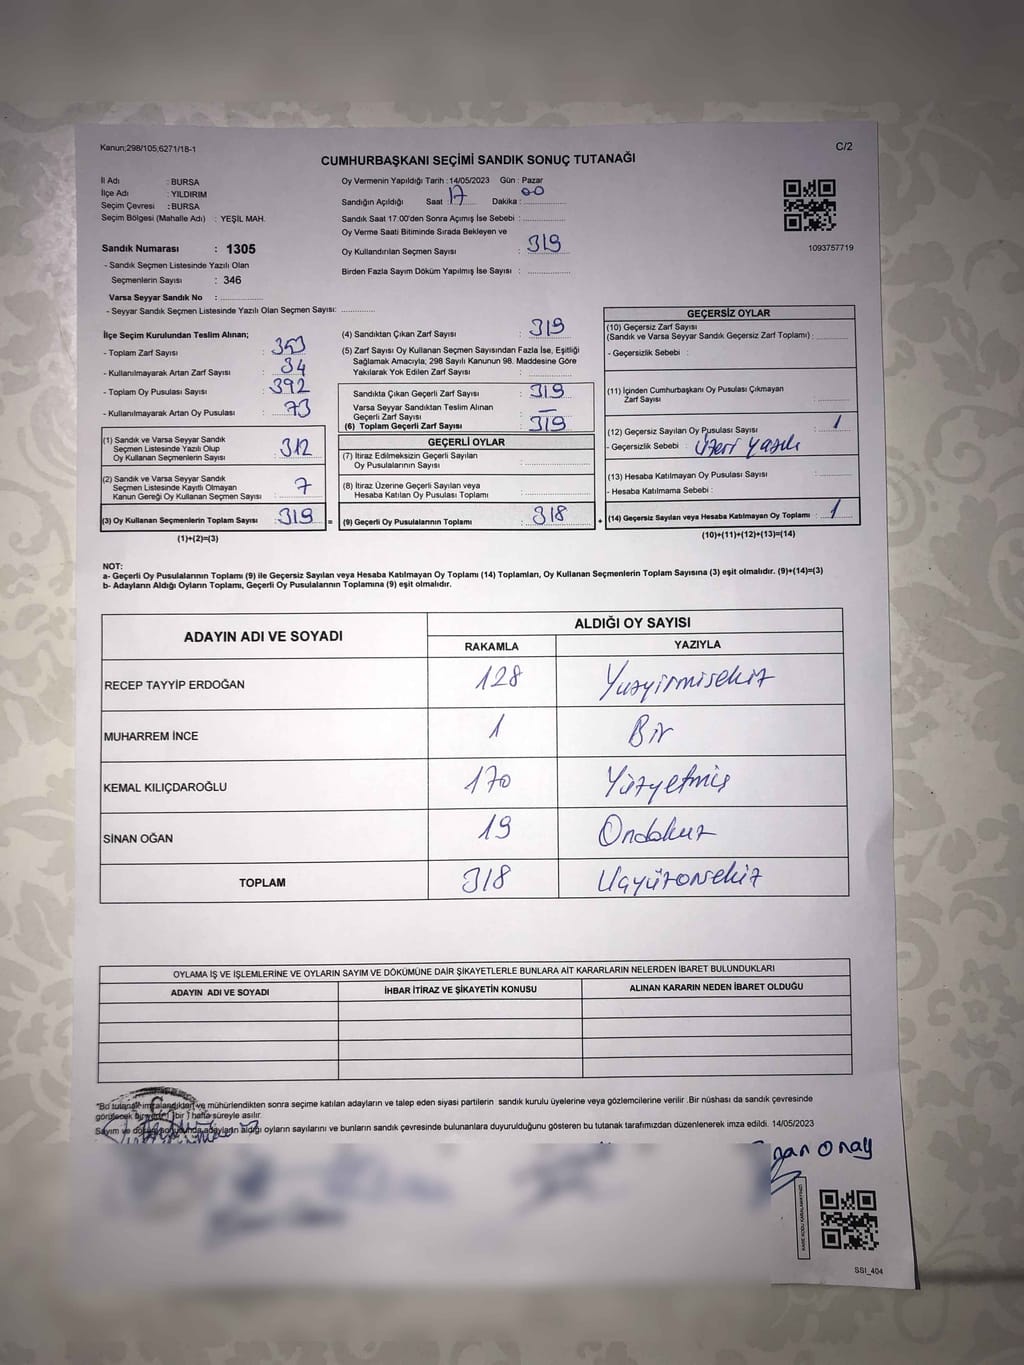 Kanun;298/105;6271/18-1
C/2
CUMHURBAŞKANI SEÇİMİ SANDIK SONUÇ TUTANAĞI
İl Adı : BURSA
İlçe Adı : YILDIRIM
Seçim Çevresi : BURSA
Seçim Bölgesi (Mahalle Adı) : YEŞİL MAH.
Sandık Numarası : 1305
- Sandık Seçmen Listesinde Yazılı Olan
Seçmenlerin Sayısı : 346
Varsa Seyyar Sandık No :
- Seyyar Sandık Seçmen Listesinde Yazılı Olan Seçmen Sayısı:
Oy Vermenin Yapıldığı Tarih : 14/05/2023 Gün : Pazar
Sandığın Açıldığı Saat : 17 Dakika : 00
Sandık Saat 17.00'den Sonra Açımış İse Sebebi :
Oy Verme Saati Bitiminde Sırada Bekleyen ve
Oy Kullandırılan Seçmen Sayısı : 319
Birden Fazla Sayım Döküm Yapılmış İse Sayısı :
1093757719
İlçe Seçim Kurulundan Teslim Alınan;
- Toplam Zarf Sayısı : 353
- Kullanılmayarak Artan Zarf Sayısı : 34
- Toplam Oy Pusulası Sayısı : 392
- Kullanılmayarak Artan Oy Pusulası : 73
(1) Sandık ve Varsa Seyyar Sandık
Seçmen Listesinde Yazılı Olup
Oy Kullanan Seçmenlerin Sayısı : 312
(2) Sandık ve Varsa Seyyar Sandık
Seçmen Listesinde Kayıtlı Olmayan
Kanun Gereği Oy Kullanan Seçmen Sayısı : 7
(3) Oy Kullanan Seçmenlerin Toplam Sayısı : 319 =
(1)+(2)=(3)
(4) Sandıktan Çıkan Zarf Sayısı : 319
(5) Zarf Sayısı Oy Kullanan Seçmen Sayısından Fazla İse, Eşitliği
Sağlamak Amacıyla; 298 Sayılı Kanunun 98. Maddesine Göre
Yakılarak Yok Edilen Zarf Sayısı :
Sandıkta Çıkan Geçerli Zarf Sayısı : 319
Varsa Seyyar Sandıktan Teslim Alınan
Geçerli Zarf Sayısı : —
(6) Toplam Geçerli Zarf Sayısı : 319
GEÇERLİ OYLAR
(7) İtiraz Edilmeksizin Geçerli Sayılan
Oy Pusulalarının Sayısı :
(8) İtiraz Üzerine Geçerli Sayılan veya
Hesaba Katılan Oy Pusulası Toplamı :
(9) Geçerli Oy Pusulalarının Toplamı : 318 +
GEÇERSİZ OYLAR
(10) Geçersiz Zarf Sayısı
(Sandık ve Varsa Seyyar Sandık Geçersiz Zarf Toplamı) :
- Geçersizlik Sebebi :
(11) İçinden Cumhurbaşkanı Oy Pusulası Çıkmayan
Zarf Sayısı :
(12) Geçersiz Sayılan Oy Pusulası Sayısı : 1
- Geçersizlik Sebebi : Üzeri Yazılı
(13) Hesaba Katılmayan Oy Pusulası Sayısı :
- Hesaba Katılmama Sebebi :
(14) Geçersiz Sayılan veya Hesaba Katılmayan Oy Toplamı : 1
(10)+(11)+(12)+(13)=(14)
NOT:
a- Geçerli Oy Pusulalarının Toplamı (9) ile Geçersiz Sayılan veya Hesaba Katılmayan Oy Toplamı (14) Toplamları, Oy Kullanan Seçmenlerin Toplam Sayısına (3) eşit olmalıdır. (9)+(14)=(3)
b- Adayların Aldığı Oyların Toplamı, Geçerli Oy Pusulalarının Toplamına (9) eşit olmalıdır.
ADAYIN ADI VE SOYADI
ALDIĞI OY SAYISI
RAKAMLA YAZIYLA
RECEP TAYYİP ERDOĞAN 128 Yüzyirmisekiz
MUHARREM İNCE 1 Bir
KEMAL KILIÇDAROĞLU 170 Yüzyetmiş
SİNAN OĞAN 19 Ondokuz
TOPLAM 318 Üçyüzonsekiz
OYLAMA İŞ VE İŞLEMLERİNE VE OYLARIN SAYIM VE DÖKÜMÜNE DAİR ŞİKAYETLERLE BUNLARA AİT KARARLARIN NELERDEN İBARET BULUNDUKLARI
ADAYIN ADI VE SOYADI İHBAR İTİRAZ VE ŞİKAYETİN KONUSU ALINAN KARARIN NEDEN İBARET OLDUĞU
*Bu tutanak imzalandıktan ve mühürlendikten sonra seçime katılan adayların ve talep eden siyasi partilerin sandık kurulu üyelerine veya gözlemcilerine verilir .Bir nüshası da sandık çevresinde
görülecek bir yere ( bir ) hafta süreyle asılır.
Sayım ve döküm sonucunda adayların aldığı oyların sayılarını ve bunların sandık çevresinde bulunanlara duyurulduğunu gösteren bu tutanak tarafımızdan düzenlenerek imza edildi. 14/05/2023
Onay
SSI_404